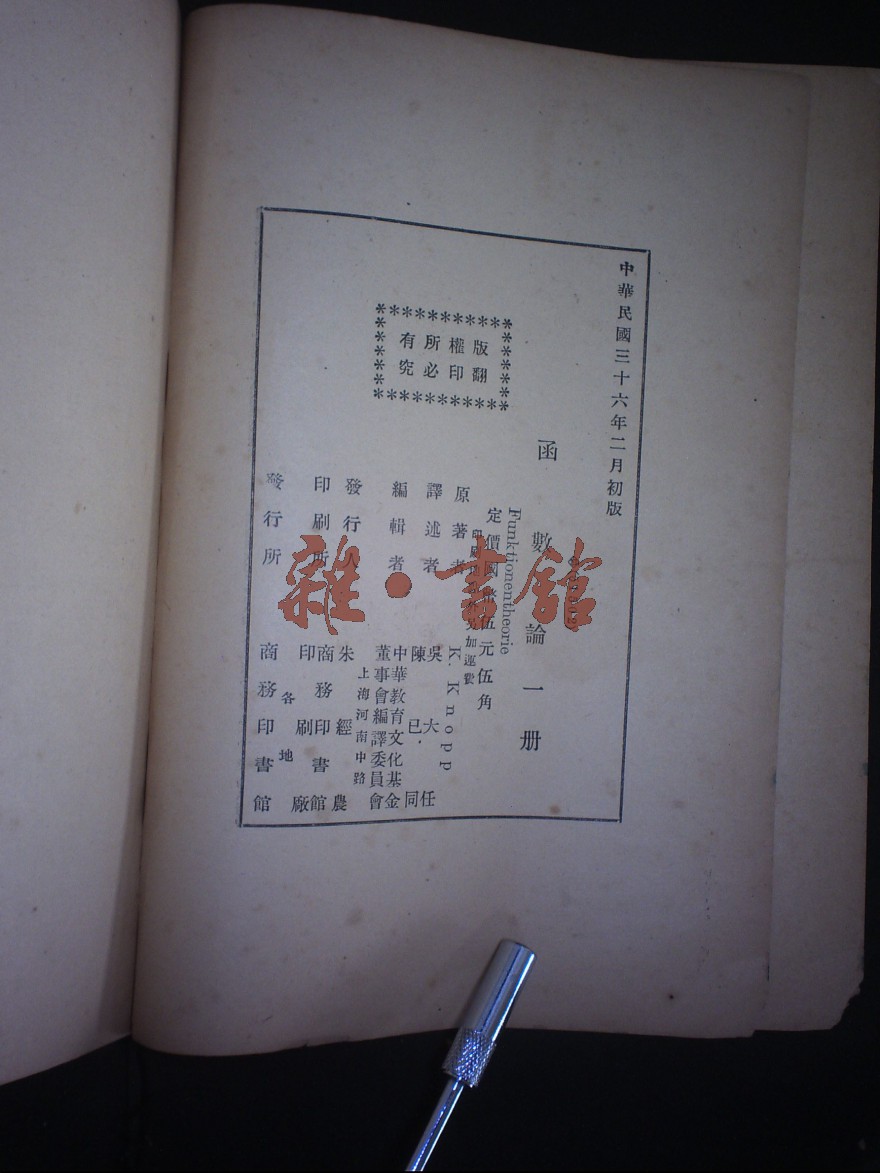 中華民國三十六年二月初版
函數論一册
Funktionentheorie
定價國幣伍元伍角
印刷地點外另加運費
原著者 K. Knopp
譯述者 吳大任 陳已同
編輯者 中華教育文化基金董事會編譯委員會
上海河南中路
發行人 朱經農
印刷所 商務印書館印刷廠
各地
發行所 商務印書館
版權所有
翻印必究
雜·書館